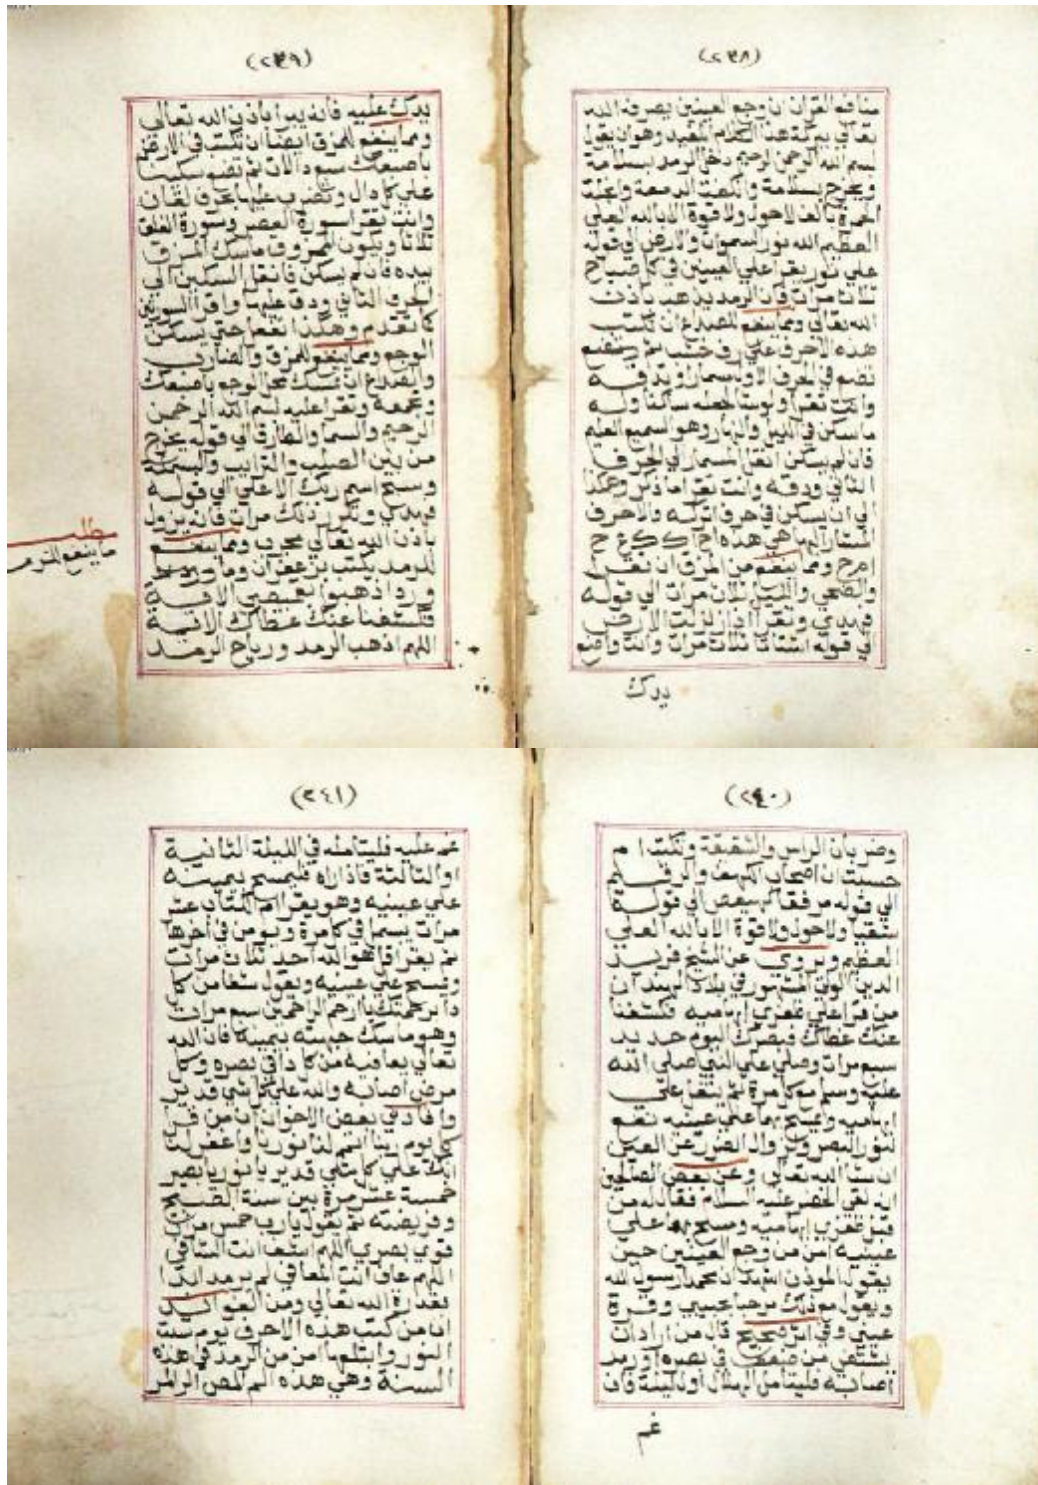 (٢٣٨)
منافع القران ان وجع العينين يصرفه الله
تعالي ببركة هذا الكلام المفيد وهو ان يقول
بسم الله الرحمن الرحيم دخل الرمد بسلامة
ويخرج بسلامة والكفت الدمعة وانجلت
الحمرة بالف لاحول ولا قوة الا بالله العلي
العظيم الله نور السموات والارض الي قوله
علي نور يقرا علي العينين في كل صباح
ثلاث مرات فان الرمد يذهب باذن
الله تعالي ومما ينفع للصداع ان تكتب
هذه الاحرف علي رف خشب ثم
تضع في الحرف الاول مسمار وتدقه
وانت تقرا ولو شا لجعله ساكنا وله
ما سكن في الليل والنهار وهو السميع العليم
فان لم يسكن انقل المسمار الي الحرف
الثاني ودقه وانت تقرا ما ذكر وهكذا
الي ان يسكن في حرف اتركه والاحرف
المشار اليها هي هذه اح ا ك ك ع ح
ا م ح ومما ينفع من المزق ان تقرا
والضحي والليل ثلاث مرات الي قوله
فهدي وتقرا اذا زلزلت الارض
الي قوله اشتاتا ثلاث مرات وانت واضع
يدك
(٢٣٩)
يدك عليه فانه يبرا باذن الله تعالي
ومما ينفع للمزق ايضا ان تكتب في الارض
باصبعك سبع دالات ثم تضع سكينا
علي كل دال وتضرب عليها بحرف لقان
وانت تقرا سورة العصر وسورة الفلق
ثلاثا ويكون الممزوق ماسك المزق
بيده فان لم يسكن فانقل السكين الي
الحرف الثاني ودق عليها واقرا السورتين
كما تقدم وهكذا تفعل حتي يسكن
الوجع ومما ينفع للمزق والضارب
والصداع ان تمسك محل الوجع باصبعك
وتجمعه وتقرا عليه بسم الله الرحمن
الرحيم والسما والطارق الي قوله يخرج
من بين الصلب والترايب والبسملة
وسبح اسم ربك الاعلي الي قوله
فهدي وتكرر ذلك مرات فانه يزول
باذن الله تعالي مجرب ومما ينفع
للرمد يكتب بزعفران وماورد
ورد اذهبوا بقميصي الاية
فكشفنا عنك غطاك الاية
اللهم اذهب الرمد ورياح الرمد
مطلب
ما ينفع للرمد
(٢٤٠)
وضربان الراس والشقيقة وتكتب ام
حسبت ان اصحاب الكهف والرقيم
الي قوله مرفقا كهيعص الي قوله
شقيا ولاحول ولاقوة الا بالله العلي
العظيم ويروي عن الشيخ فريد
الدين الولي المشهور في بلاد الهند ان
من قرا علي ظفري ابهاميه فكشفنا
عنك غطاك فبصرك اليوم حديد
سبع مرات وصلي علي النبي صلي الله
عليه وسلم مع كل مرة ثم يتفل علي
ابهاميه ويمسح بهما علي عينيه نفع
لنور البصر وزوال الضرر عن العين
ان شا الله تعالي وعن بعض الصالحين
انه لقي الخضر عليه السلام فقال له من
قبل ظفري ابهاميه ومسح بهما علي
عينيه امن من وجع العينين حين
يقول الموذن اشهد ان محمدا رسول الله
ويقول مع ذلك مرحبا بحبيبي وقرة
عيني وفي اثر صحيح قال من اراد ان
يشتفي من ضعف في بصره او رمد
اصابه فليتامل الهلال اول ليلة فان
غم
(٢٤١)
غم عليه فليتامله في الليلة الثانية
او الثالثة فاذا راه فليمسح بيمينه
علي عينيه وهو يقرا ام الكتاب عشر
مرات يبسمل في كل مرة ويومن في اخرها
ثم يقرا قل هو الله احد ثلاث مرات
ويمسح علي عينيه ويقول شفا من كل
دا برحمتك يا ارحم الراحمين سبع مرات
وهو ماسك جبهته بيمينه فان الله
تعالي يعافيه من كل دا في بصره وكل
مرض اصابه والله علي كل شي قدير
وافادني بعض الاخوان ان من قرا
كل يوم ربنا اتمم لنا نورنا واغفر لنا
انك علي كل شي قدير يا نور يا بصير
خمسة عشر مرة بين سنة الصبح
وفريضته ثم يقول يارب خمس مرات
قوي بصري اللهم اشف انت الشافي
اللهم عاف انت المعافي لم يرمد ابدا
بقدرة الله تعالي ومن الفوائد
ان من كتب هذه الاحرف يوم سبت
النور وابتلعها امن من الرمد في هذه
السنة وهي هذه الم المص الر المر